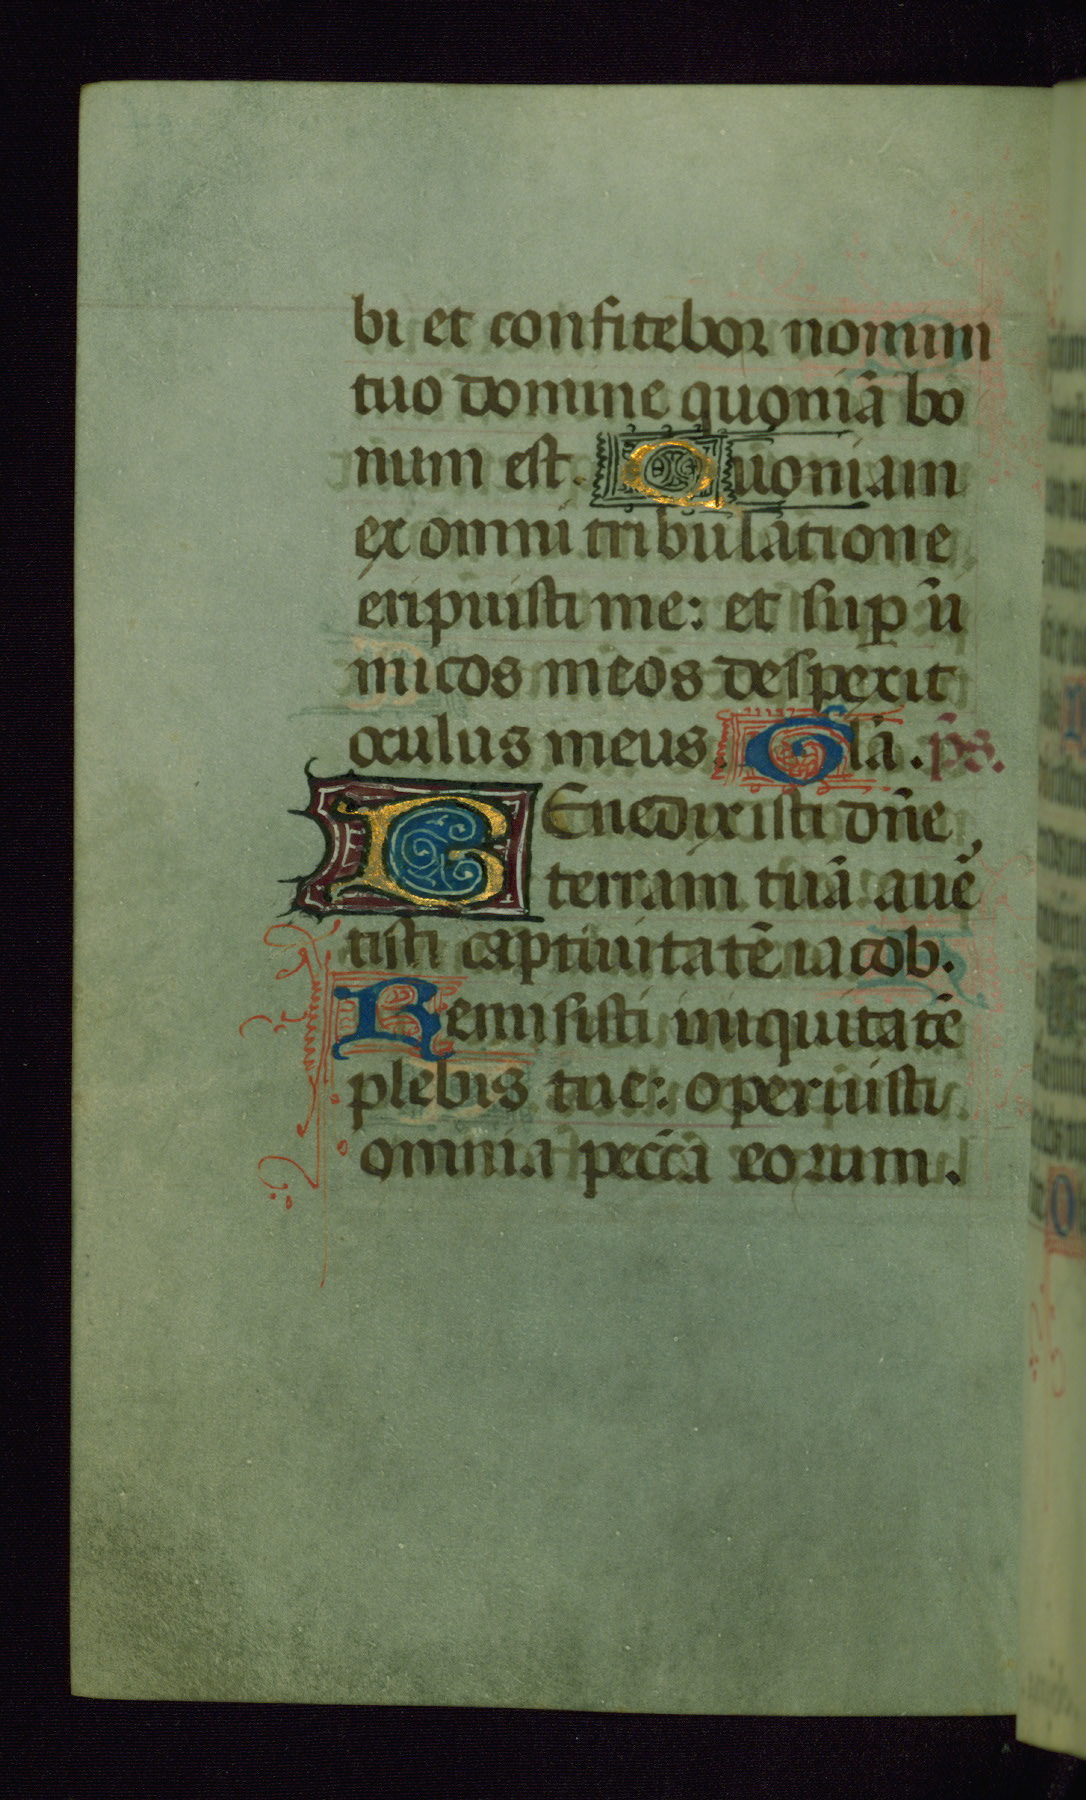 bi et confitebor nomini
tuo domine quoniā bo
num est. Quoniam
ex omni tribulatione
eripuisti me: et sup̄ ini
micos meos despexit
oculus meus. Glā. p̄s.
BEnedixisti dn̄e
terram tuā auē
tisti captiuitatē iacob.
Remisisti iniquitatē
plebis tue: operuisti
omnia pecc̄a eorum.